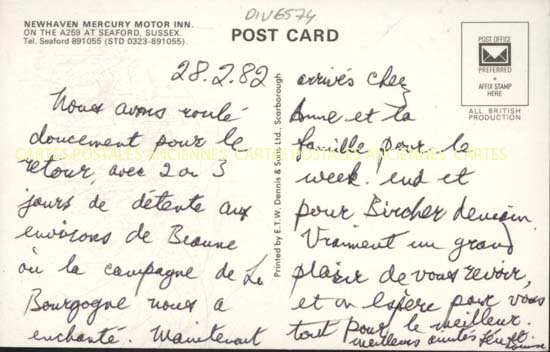 NEWHAVEN MERCURY MOTOR INN.
ON THE A259 AT SEAFORD, SUSSEX.
Tel. Seaford 891055 (STD 0323-891055).
DIV6574
POST CARD
POST OFFICE
PREFERRED
AFFIX STAMP
HERE
ALL BRITISH
PRODUCTION
28.2.82
Nous avons roulé
doucement pour le
retour, avec 2 ou 3
jours de détente aux
environs de Beaune
où la campagne de La
Bourgogne nous a
enchanté. Maintenant
Printed by E.T.W. Dennis & Sons Ltd., Scarborough
arrivés chez
Anne et la
famille pour le
week. end et
pour Bircher demain.
Vraiment un grand
plaisir de vous revoir,
et on espère pour vous
tout pour le meilleur.
meilleures amitiés
CARTES POSTALES ANCIENNES CARTES POSTALES ANCIENNES CARTES